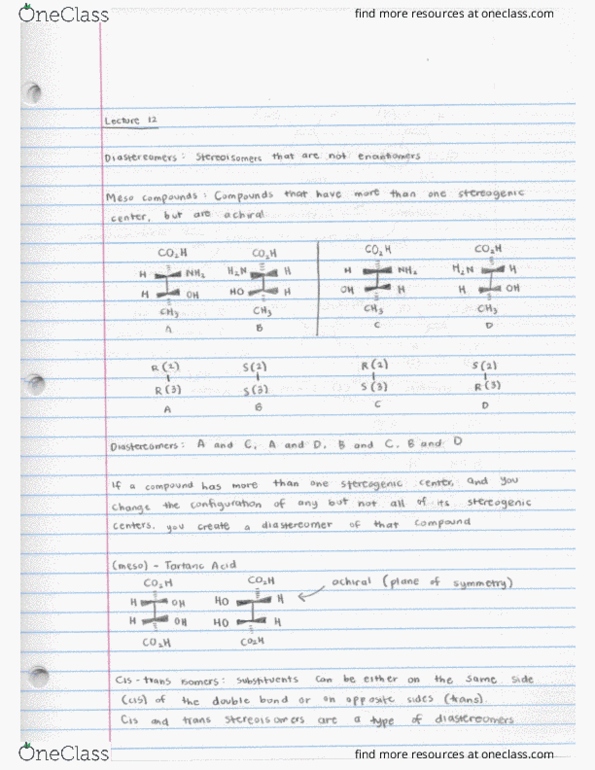 OneClass
find more resources at oneclass.com
Lecture 12
Diastereomers: Stereoisomers that are not enantiomers
Meso compounds: Compounds that have more than one stereogenic
center, but are achiral
CO₂H CO₂H CO₂H CO₂H
H NH₂ H₂N H H NH₂ H₂N H
H OH HO H OH H H OH
CH₃ CH₃ CH₃ CH₃
A B C D
R(2) S(2) R(2) S(2)
R(3) S(3) S(3) R(3)
A B C D
Diastereomers: A and C, A and D, B and C, B and D
If a compound has more than one stereogenic center, and you
change the configuration of any but not all of its stereogenic
centers, you create a diastereomer of that compound
(meso) - Tartaric Acid
CO₂H CO₂H achiral (plane of symmetry)
H OH HO H
H OH HO H
CO₂H CO₂H
Cis-trans isomers: substituents can be either on the same side
(cis) of the double bond or on opposite sides (trans).
Cis and trans stereoisomers are a type of diastereomers
OneClass
find more resources at oneclass.com